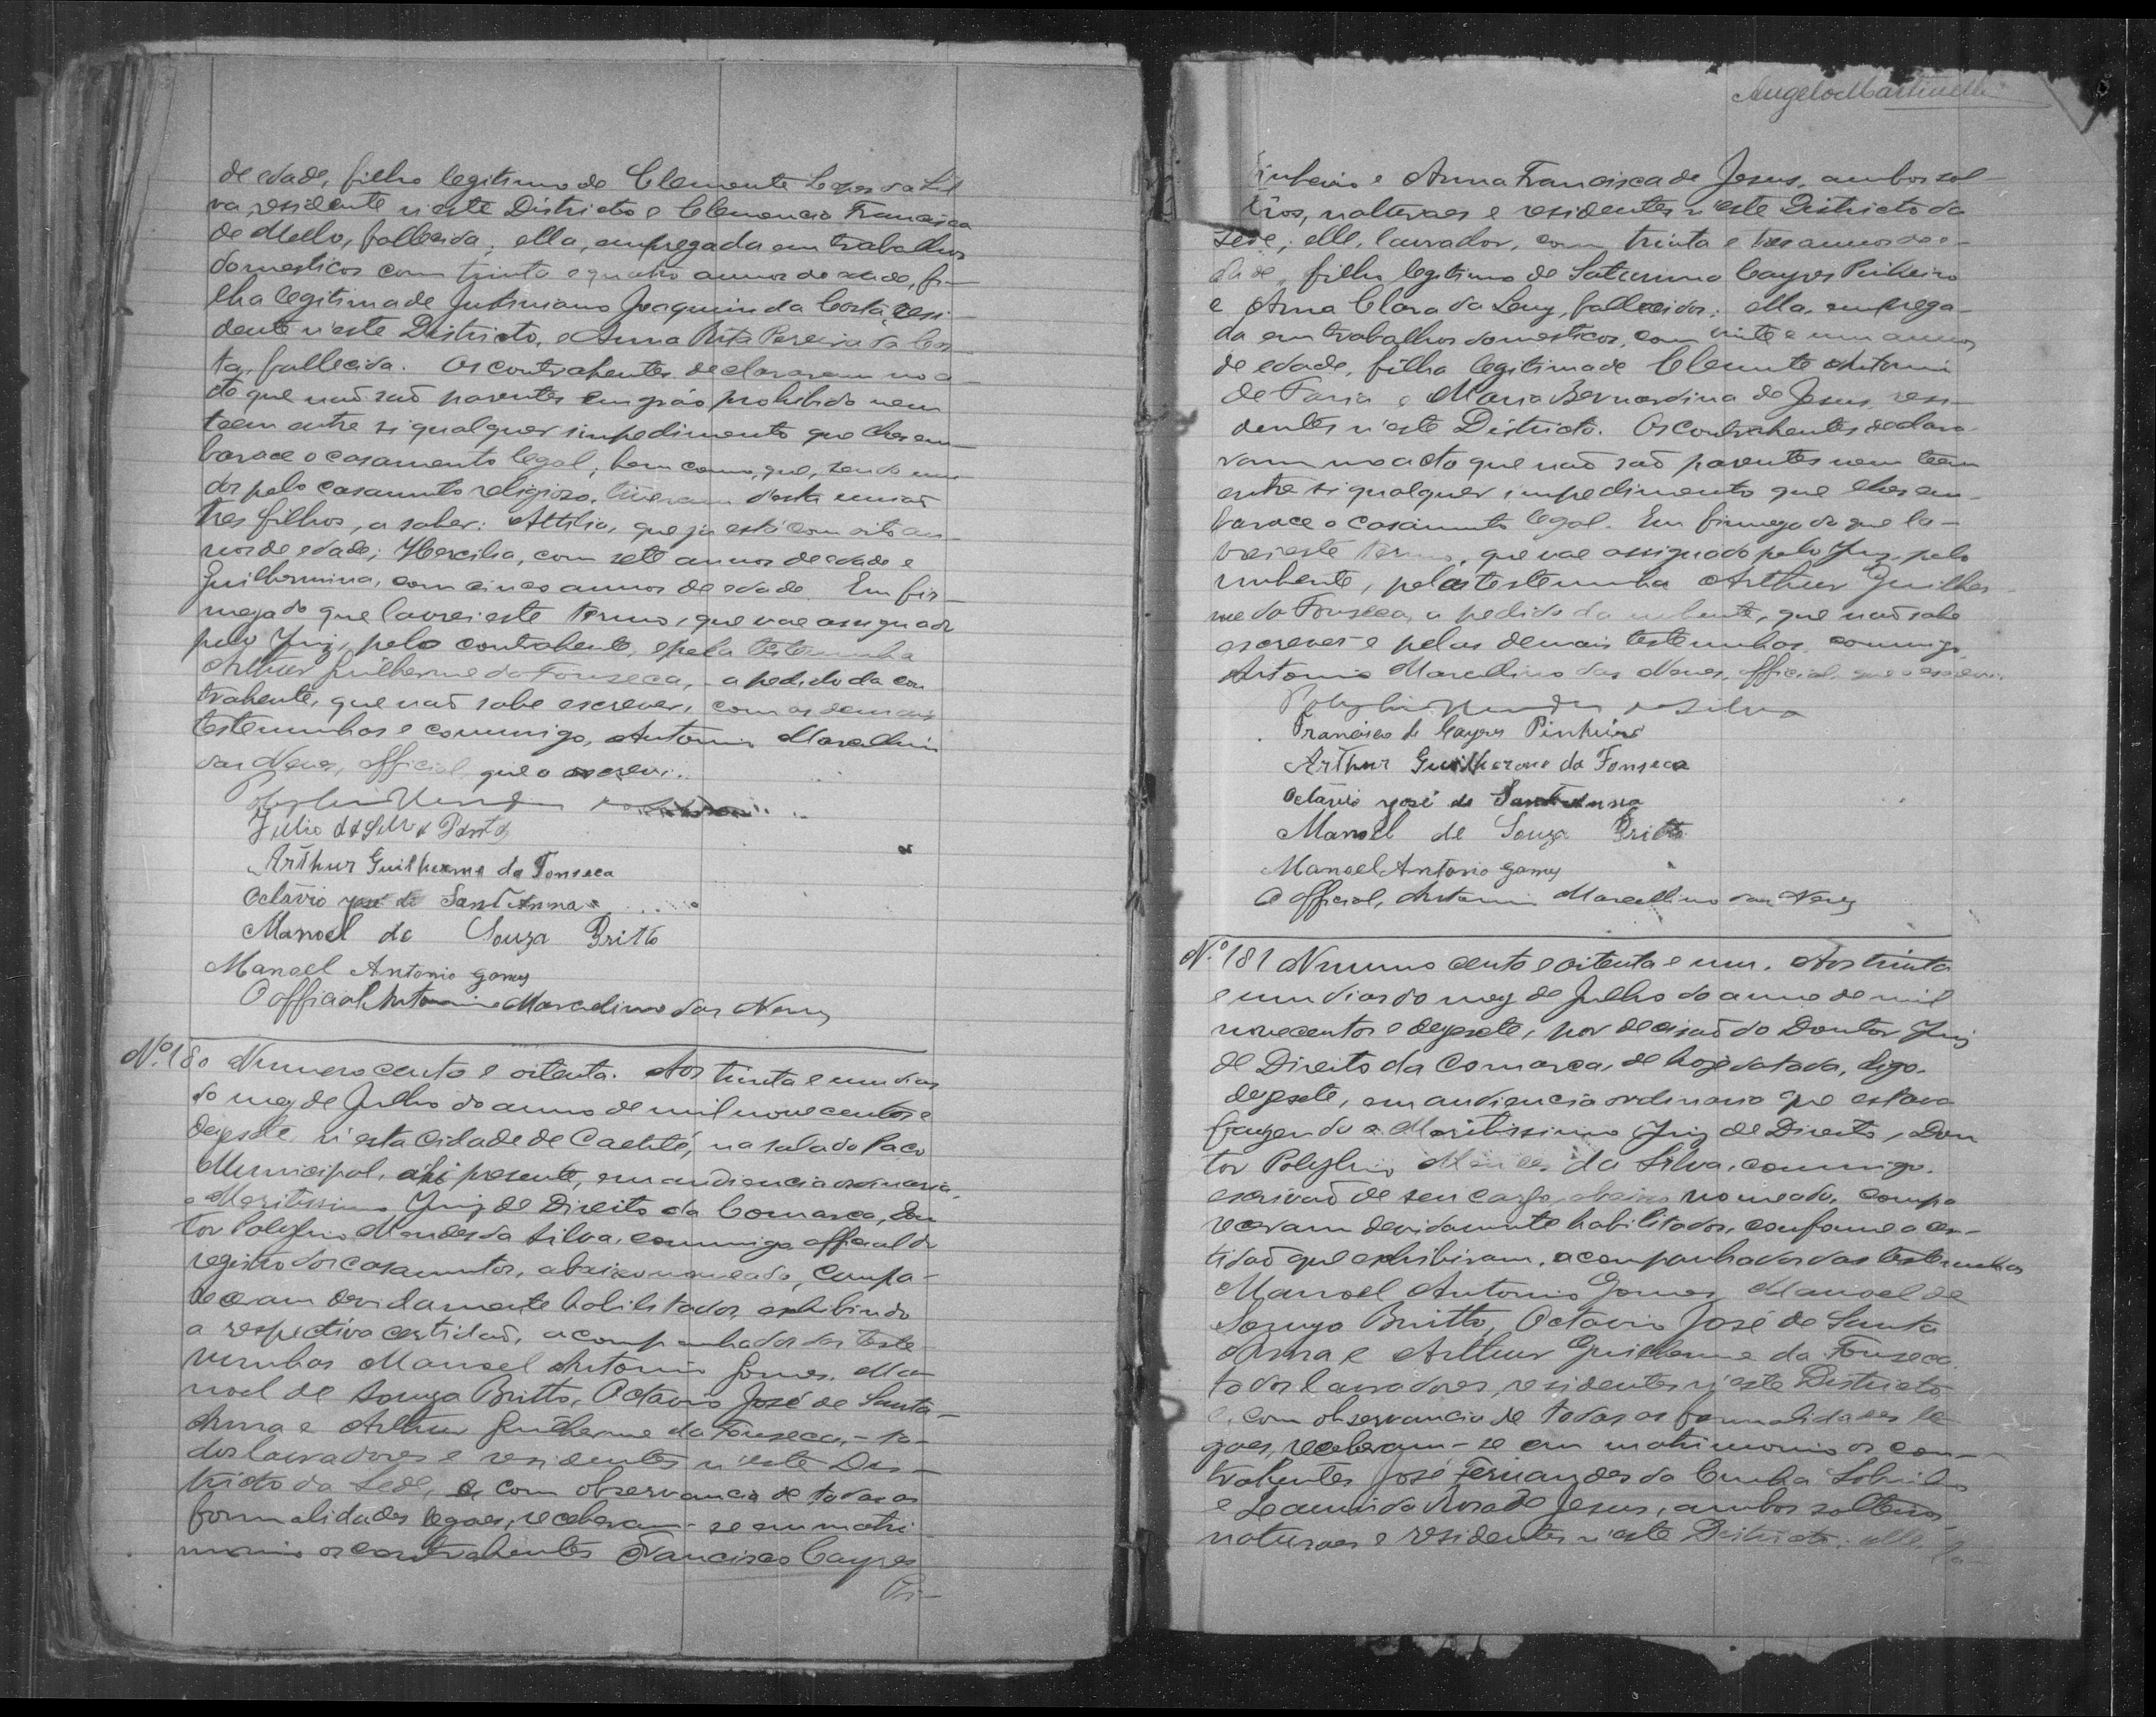 de edade, filho legitimo de Clemente Lopes da Sil
va, residente n'este Districto e Clemencia Francisca
de Mello, fallecida; ella, empregada em trabalhos
domesticos com trinta e quatro annos de edade, fi-
lha legitima de Justiniano Joaquim da Costa, resi-
dente n'este Districto, e Anna Rita Pereira da Cos-
ta, fallecida. Os contrahentes declararam no a-
cto que naõ saõ parentes em gráo prohibido nem
teem entre si qualquer impedimento que lhes em-
barace o casamento legal; bem como, que, sendo uni
dos pelo casamento religioso, tiveram d'esta uniaõ
tres filhos, a saber: Attilia, que já está com oito an-
nos de edade; Hercilia, com sete annos de edade e
Guilhermina, com cinco annos de edade. Em fir-
meza do que lavrei este termo, que vae assignado
pelo Juiz, pelo contrahente, e pela testemunha
Arthur Guilherme da Fonseca, a pedido da con
trahente, que naõ sabe escrever, com as demais
testemunhas e commigo, Antonio Marcellino
das Neves, official que o escrevi.
Julio da Silva
Arthur Guilherme da Fonseca
Octavio José de Sant'Anna
Manoel de Souza Britto
Manoel Antonio Gomes
O official Antonio Marcelino das Neves
Nº. 180 Numero cento e oitenta. Aos trinta e um dias
do mez de Julho do anno de mil novecentos e
dezesete, n'esta Cidade de Caetité, na sala do Paco
Municipal, ahi presente, em audiencia ordinaria,
o Meritissimo Juiz de Direito da Comarca, Dou
tor Polyfino Mendes da Silva, commigo official do
registro dos casamentos, abaixo nomeado, compa-
receram devidamente habilitados, exhibindo
a respectiva certidaõ, acompanhados das teste
munhas Manoel Antonio Gomes, Ma-
noel de Souza Britto, Octavio José de Santa
Anna e Arthur Guilherme da Fonseca, - to-
dos lavradores e residentes n'este Dis-
tricto da Sede, e com observancia de todas as
formalidades legaes, receberam-se em matri
monio os contrahentes Francisco Cayres
Pi-
Angelo Martinelli
nheiro e Anna Francisca de Jesus, ambos sol-
teiros, naturaes e residentes n'este Districto da
Sede; elle, lavrador, com trinta e tres annos de e-
dade, filho legitimo de Saturnino Cayres Pinheiro
e Anna Clara da Luz, fallecidos; ella, emprega-
da em trabalhos domesticos, com vinte e um annos
de edade, filha legitima de Clemente Antonio
de Faria e Maria Bernardina de Jesus, resi-
dentes n'este Districto. Os contrahentes declara-
ram no acto que naõ saõ parentes nem teem
entre si qualquer impedimento que lhes em-
barace o casamento legal. Em firmeza do que la-
vrei este termo, que vae assignado pelo Juiz, pelo
nubente, pela testemunha Arthur Guilher-
me da Fonseca, a pedido da nubente, que naõ sabe
escrever e pelas demais testemunhas, commigo
Antonio Marcellino das Neves, official, que o escrevi.
Francisco de Cayres Pinheiro
Arthur Guilherme da Fonseca
Octavio José de Sant'Anna
Manoel de Souza Britto
Manoel Antonio Gomes
O official, Antonio Marcellino das Neves
Nº. 181 Numero cento e oitenta e um. Aos trinta
e um dias do mez de Julho do anno de mil
novecentos e dezesete, por decisaõ do Doutor Juiz
de Direito da Comarca, de hoje datada, digo.
dezesete, em audiencia ordinaria que estava
fazendo o Meritissimo Juiz de Direito, Dou
tor Polyfino Mendes da Silva, commigo.
escrivaõ de seu cargo abaixo nomeado, compa
receram devidamente habilitados, conforme a cer-
tidaõ que exhibiram, acompanhados das testemunhas
Manoel Antonio Gomes, Manoel de
Souza Britto, Octavio José de Santa
Anna e Arthur Guilherme da Fonseca.
todos lavradores, residentes n'este Districto
e, com observancia de todas as formalidades le
gaes, receberam-se em matrimonio os con-
trahentes José Fernandes da Cunha Sobrinho
e Leannida Rosa de Jesus, ambos solteiros,
naturaes e residentes n'este Districto; elle, la-